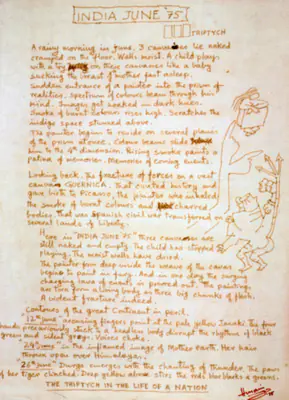 INDIA JUNE '75
TRIPTYCH
A rainy morning in June. 3 canvases lie naked
cramped on the floor. Walls moist. A child plays
with a toy on these canvases like a baby
sucking the breast of mother fast asleep.
Sudden entrance of a painter into the prism of
realities. Spectrum of colours beam through his
mind. Images get soaked in dark hues.
Smoke of burnt colours rises high. Scratches the
indigo space strewed above.
The painter begins to reside on several planes
of the prism at once. Colour beams slide
him to the 4th dimension. Rising smoke paints a
patina of memories. Memories of coming events.
Looking back. The fracture of forces on a vast
canvas GUERNICA. That created history and
gave birth to Picasso, the painter who inhaled
the smoke of burnt colours and charred
bodies. That was Spanish civil war transformed on
several lands of liberty.
Here in "INDIA JUNE 75" three canvases are
still naked and empty. The child has stopped
playing. The moist walls have dried.
The painter from deep inside the weave of the canvas
begins to paint in fury. And in one day the surging
changing tones of events is poured out. The painting,
are torn from along body, on three big chunks of flesh.
A violent fracture indeed.
Contours of the great Continent in peril.
12 June accusing fingers point at the pale yellow Janaki. The four
hands precariously stuck to a headless body through the rhythm of black
green and silent grays. Voices choke.
24th June in the inflamed image of Mother Earth. Her hair
thrown upon over Himalayas.
26th June Durga emerges with the chanting of thunder. The paws
of her tiger clinched. Deep yellow alone stirs the red, the blacks & greens.
THE TRIPTYCH IN THE LIFE OF A NATION